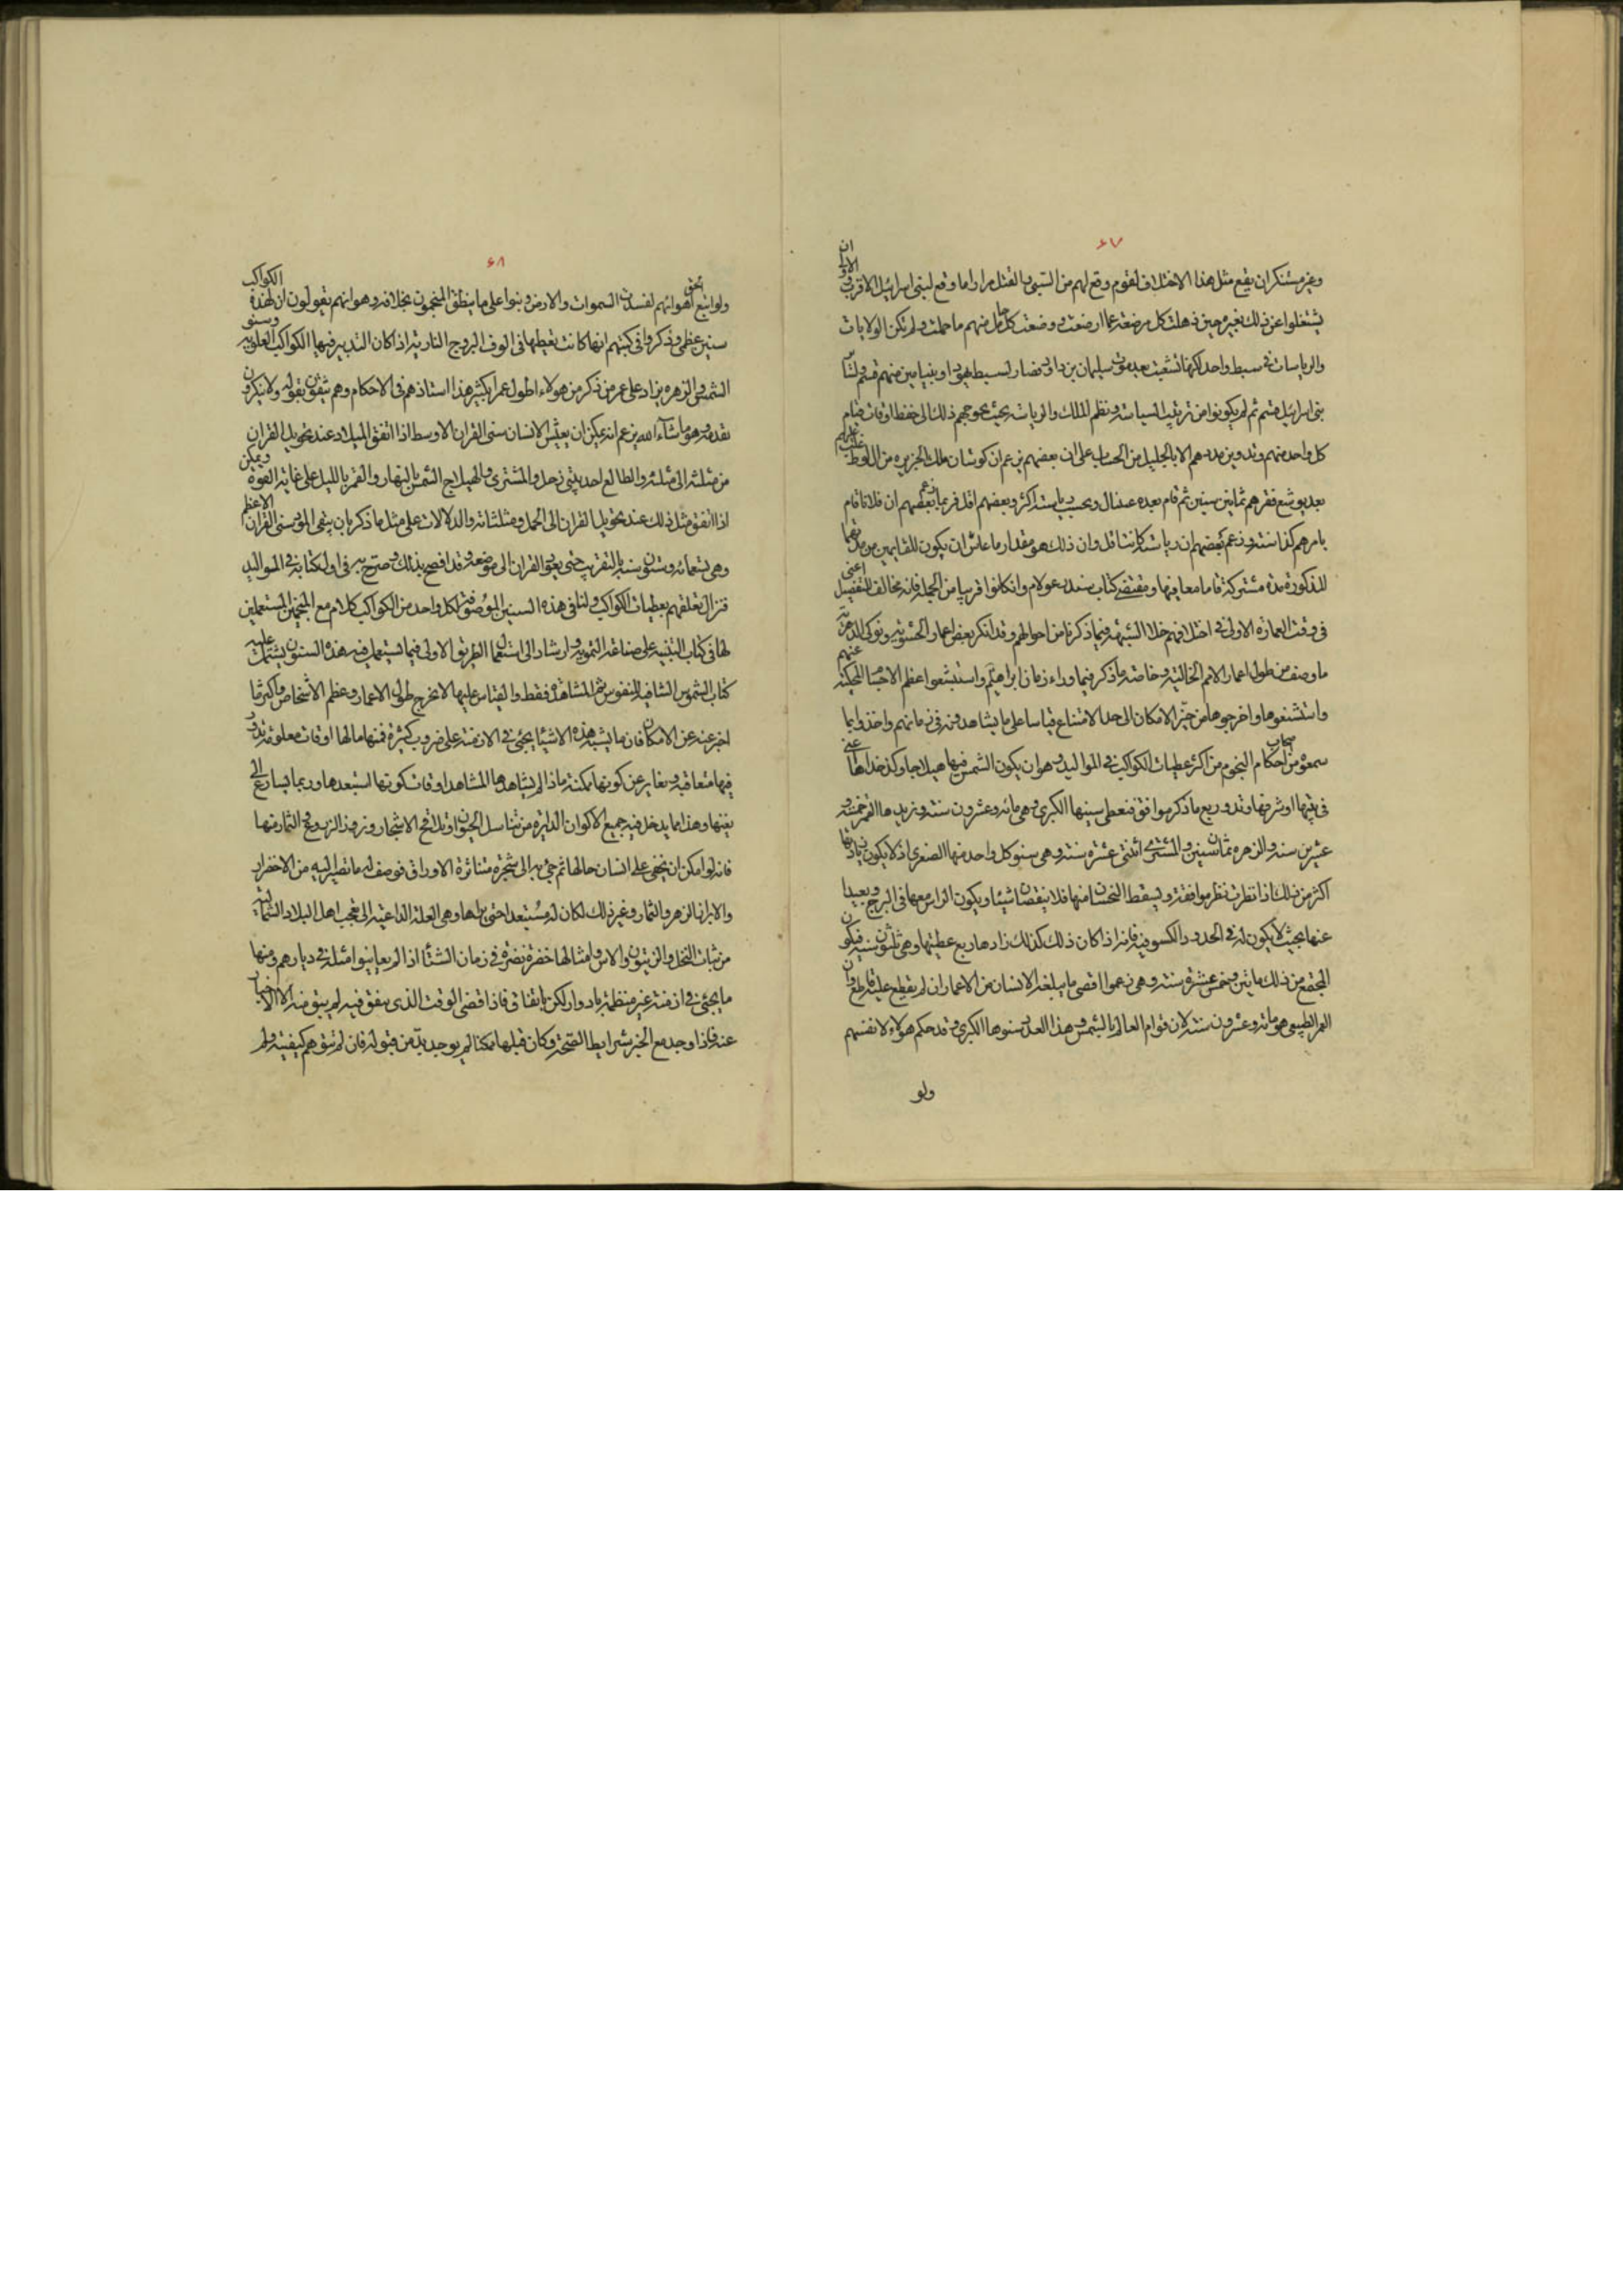 ٦٧
وغير مستنكر ان يقع مثل هذا الاختلاف لقوم وقع لهم من السبى والقتل مرارا ما وقع لبنى اسرائيل الاقرب الاولى ان
يشتغلوا عن ذلك بغيره حين ذهلت كل مرضعة عما ارضعت ووضعت كل حامل منهم ما حملت ولم تكن الولايات
والرياسات فى سبط واحد لكنها تشعبت بعد موت سليمان بن داود فصار لسبط يهودا وبنيامين منهم قسم ولسائر
بنى اسرائيل قسم ثم لم يكونوا من ترتيب السياسة ونظم الملك والرياسة بحيث يحوجهم ذلك الى حفظ اوقات قيام
كل واحد منهم وتدوين مددهم الا بالجليل من الحساب على ان بعضهم يزعم ان كوشان ملك الجزيرة من ال لوط غلبهم
بعد يوشع فقهرهم ثمانين سنين ثم قام بعده عسال وبحسب رياسته اكثر وبعضهم اقل فربما زعم بعضهم ان فلانا قام
بامرهم كذا سنة وزعم بعضهم ان رياسته كانت اقل وان ذلك هو مقدار ما عاش او ان يكون للقايمين من مدتهما
المذكورة مدة مشتركة قاما معا فيها ومقتضى كتاب سدر عولام وان كانوا قريبا من الجملة فانه مخالف التفصيل اعنى
فى وقت العمارة الاولى فى اختلافهم خلا الشبهة فيما ذكرنا من احوالهم وقد انكر بعض اغمار الحشوية ونوكى الدهرية
ما وصف من طول اعمار الامم الخالية وخاصة ما ذكر فيما وراء زمان ابراهيم واستبشعوا عظم الاجسام المحكية عنهم
واستشنعوها واخرجوها من حيز الامكان الى حد الامتناع قياسا على ما يشاهدونه فى زمانهم واخذوا بما
سمعوه من اصحاب احكام النجوم من اكثر عطيات الكواكب فى المواليد وهو ان يكون الشمس فيها هيلاجا وكدخداها اعنى
فى بيتها او شرفها وتد وربع مذكر موافق فتعطى سينها الكبرى وهى مائه وعشرون سنة ويزيدها القمر خمسة و
عشرين سنه والزهره ثمان سنين والمشترى اثنتى عشرة سنة وهى سنو كل واحد منها الصغرى اذ لا يكون زيادتها
اكثر من ذلك اذا نظرت نظر موافقة ويسقط النحسان منها فلا ينقصان شيئا ويكون الراس معها فى البرج وبعيدا
عنها بحيث لا يكون له فى الحدود الكسوفيه فانه اذا كان ذلك كذلك زادها ربع عطيتها وهى ثلثون سنة فيكون
المجتمع من ذلك مائتين وخمس عشرة سنة وهى زعموا اقصى ما يبلغه الانسان من الاعمار ان لم يقطع عليه قاطع وان
العمر الطبيعى هو مائة وعشرون سنة لان قوام العالم بالشمس وهذا العدد سنوها الكبرى وقد حكم هؤلاء لانفسهم
ولو
٦٨
ولو اتبع الحق اهوائهم لفسدت السموات والارض وبنوا على ما ينطق المنجمون بخلافه وهو انهم يقولون ان لهذه الكواكب
سنين عظمى وذكروا فى كتبهم انها كانت تعطيها فى الوف البروج النارية اذ كان التدبير فيها الكواكب العلوية وسنو
الشمس والزهره يزاد على عمر من ذكر من هولاء اطول عمرا بكثير هذا استاذهم فى الاحكام وهم يثقون بقوله ولا ينكرون
تقدمه وهو ماشاء الله يزعم انه يمكن ان يعيش الانسان سنى القران الاوسط اذا اتفق الميلاد عند تحويل القران
من مثلثه الى مثلثه والطالع احد بيتى زحل والمشترى والهيلاج الشمس بالنهار والقمر بالليل على غاية القوة ويمكن
اذا اتفق مثل ذلك عند تحويل القران الى الحمل ومثلثاته والدلالات على مثل ما ذكر بان يبقى المولود سنى القران الاعظم
وهى تسعمائه وستون سنه بالتقريب حتى يعود القران الى موضعه وقد افصح بذلك وصرح به فى اول كتابه فى المواليد
فنزال تعلقهم بعطيات الكواكب ولنا فى هذه السنين الموصوفة لكل واحد من الكواكب كلام مع المنجمين المستعملين
لها فى كتاب التنبيه على صناعة التمويه وارشاد الى استعمال الطريق الاولى فيما يستعمل فيه هذه السنون يشتمل عليه
كتاب الشموس الشافيه للنفوس ثم المشاهده فقط والقياس عليها لا يخرج طول الاعمار وعظم الاشخاص واكثر ما
اخبر عنه عن الامكان فان ما يشبه هذه الاشيا يجئ فى الازمنة على ضروب كثيرة فمنها مالها اوقات معلومة تدور
فيها متعاقبه وتغاير عن كونها ممكنة ماذا لم يشاهدها المشاهد اوقات كونها استبعدها وربما يسارع الى
نفيها وهذا مما يدخل فيه جميع الاكوان الدايرة من تناسل الحيوان وتلاقح الاشجار وبروز الزروع والثمار منها
فانه لو امكن ان يخفى على انسان حالها ثم جئ به الى شجرة متناثرة الاوراق فوصف له ما تصير اليه من الاخضرار
والابراز الزهر والثمار وغير ذلك لكان له مستبعدا حتى يراها وهى العلة الداعية الى تعجب اهل البلاد الشمالية
من ثبات النخل والزيتون والاس وامثالها خضرة نضرة فى زمان الشتا اذ لم يعاينوا امثله فى ديارهم ومنها
ما يجئ فى ازمنة غير منتظمة بادوار لكن باتفاق فاذا انقضى الوقت الذى يتفق فيه لم يبق منه الا الاخبار
عنه فاذا وجد مع الخبر شرايط الصحة وكان قبلها ممكنا لم يوجد بد من قبوله فان لم تتوهم كيفيته ولم